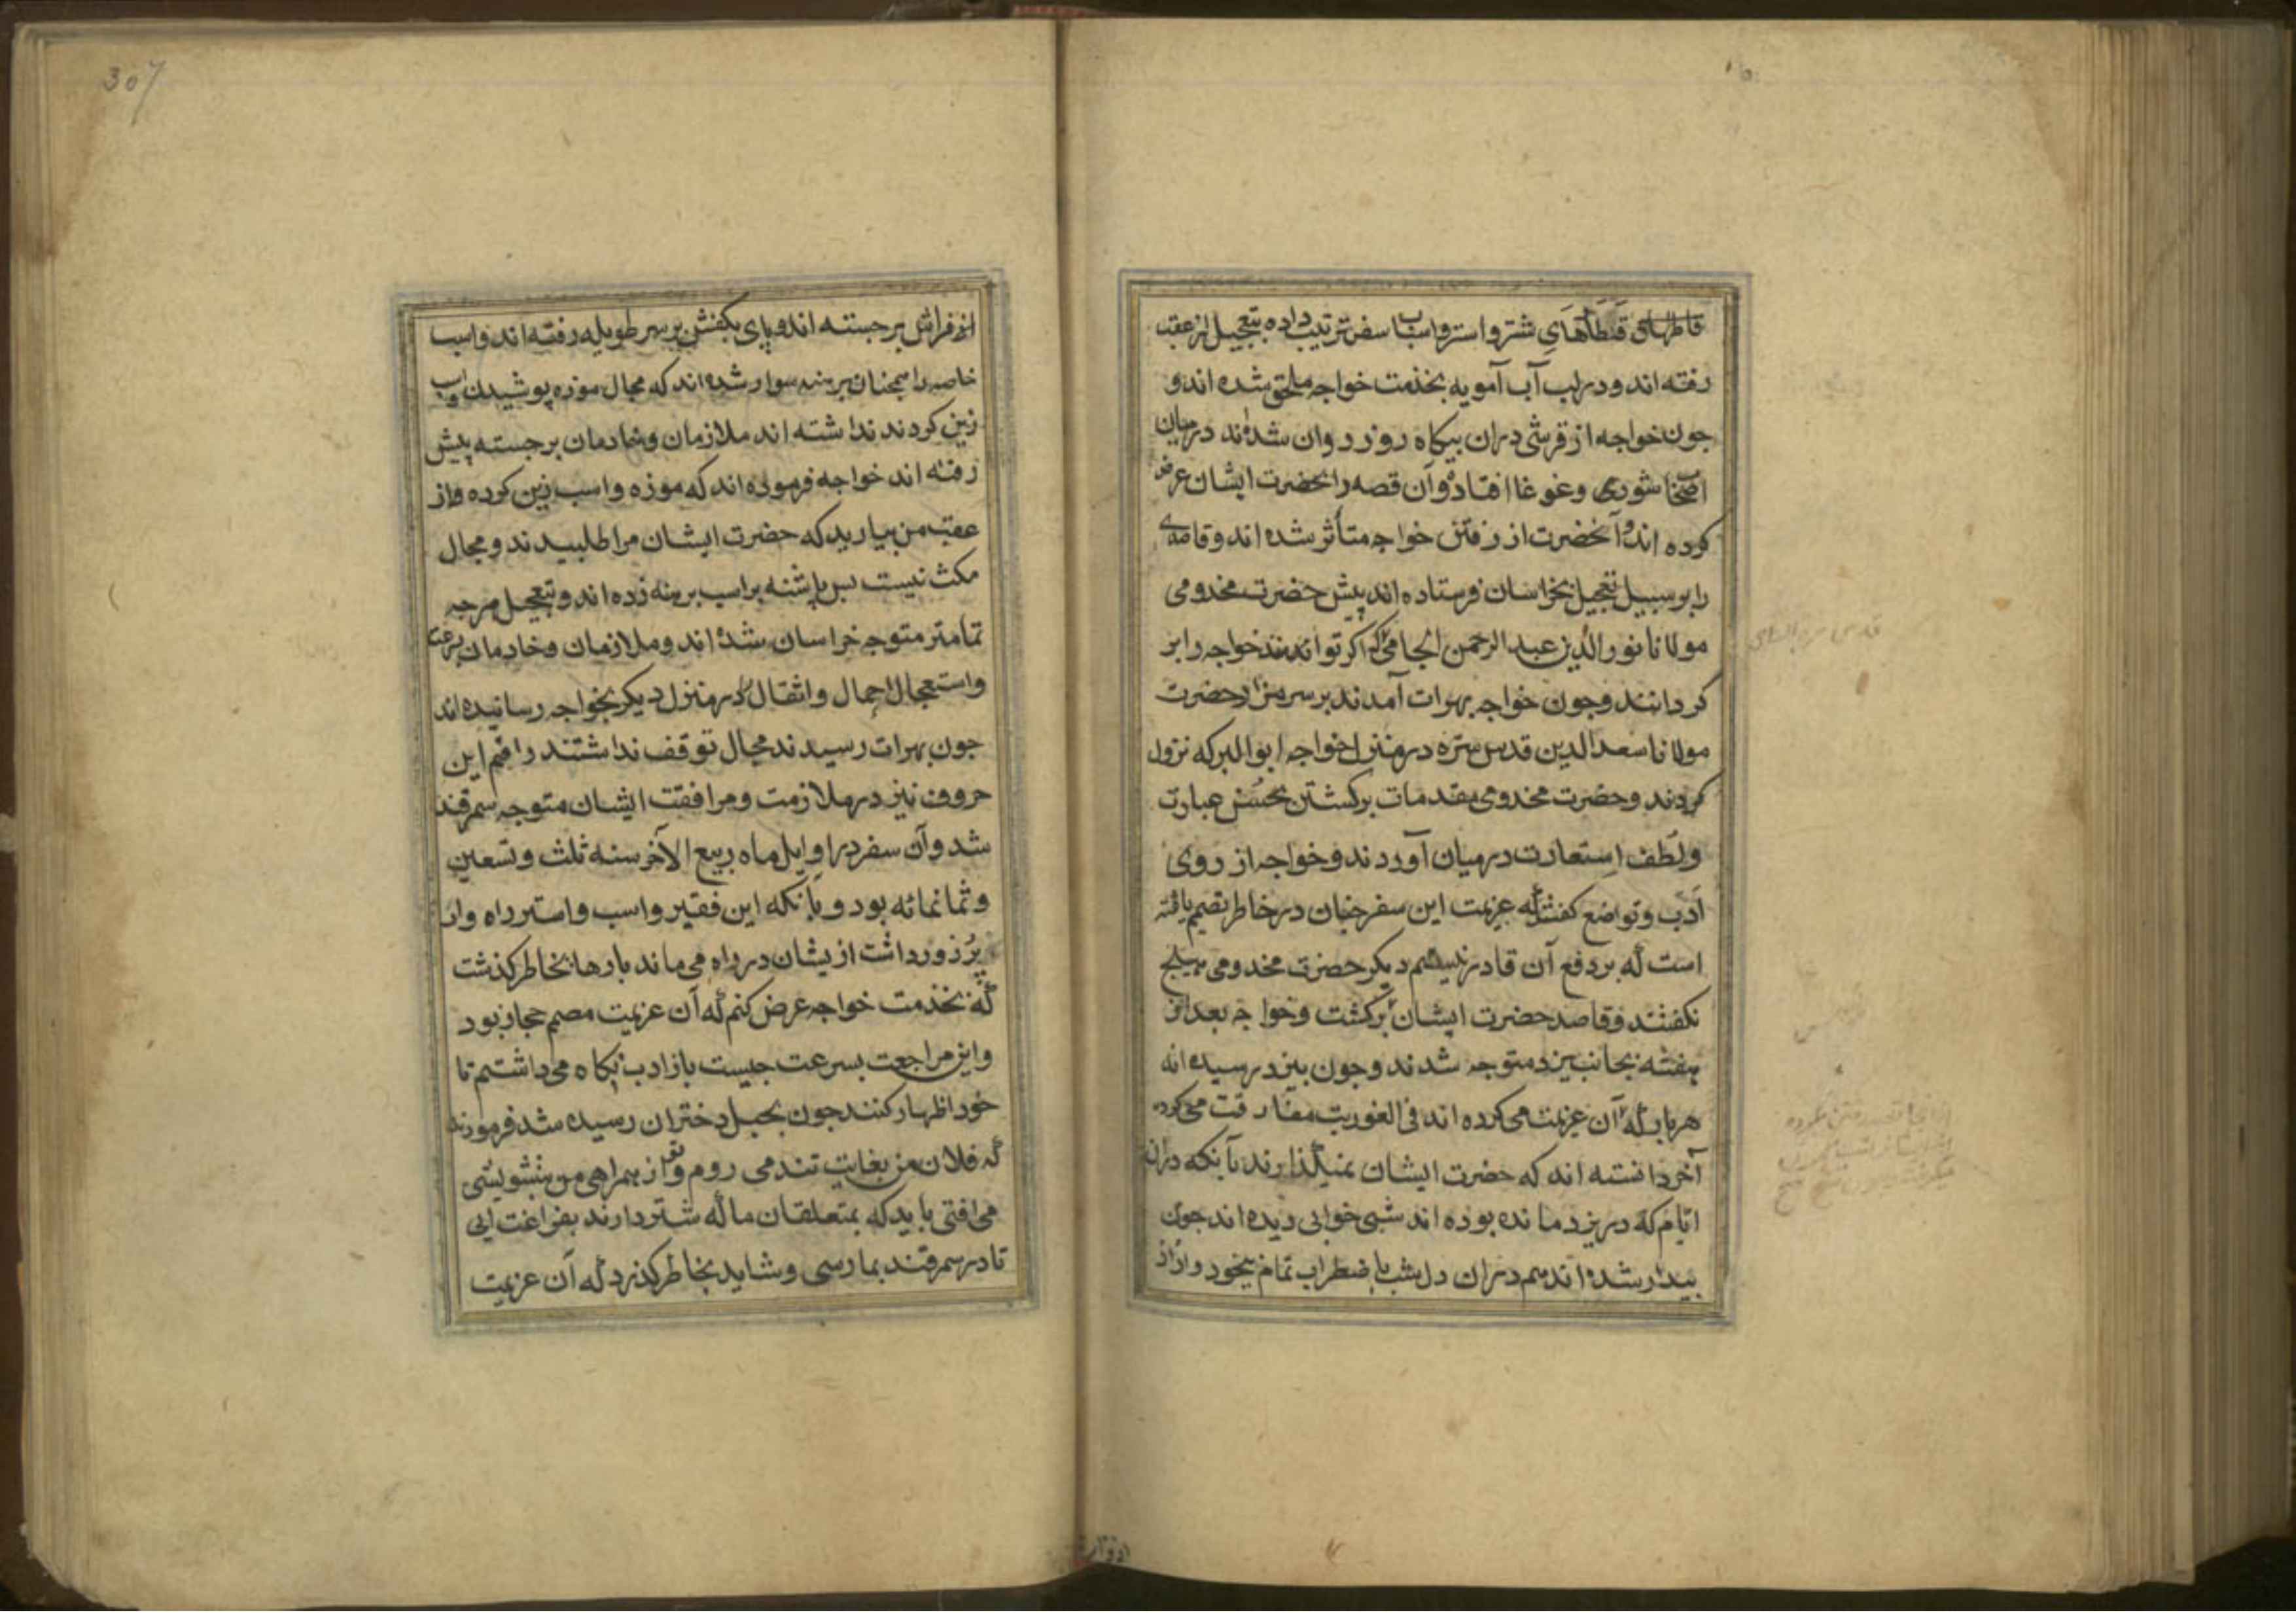 قطارهای شتر و استر و اسباب سفر ترتیب داده بتعجیل از عقب
رفته اند و در لب آب آمویه بخدمت خواجه ملحق شده اند و
جون خواجه از قرشی دران بیکاه روز روان شده اند در میان
اصحاب شوری و غوغا افتاده و آن قصه را بحضرت ایشان عرض
کرده اند و آنحضرت از رفتن خواجه متأثر شده اند و قاصدی
را بر سبیل تعجیل بخراسان فرستاده اند پیش حضرت مخدومی
مولانا نور الدین عبد الرحمن الجامی که اکر توانند خواجه را بر
کردانند و جون خواجه بهرات آمدند بر سر مزار حضرت
مولانا سعد الدین قدس سره در منزل خواجه ابو البرکه نزول
کردند و حضرت مخدومی مقدمات برکشتن بحُسْن عبارت
و لُطف اِستعارت در میان آوردند و خواجه از روی
اَدَب و تواضع کفتند که عزیمت این سفر جنان در خاطر تصمیم یافته
است که بر دفع آن قادر نیستم دیکر حضرت مخدومی هیج
نکفتند و قاصد حضرت ایشان برکشت و خواجه بعد از
هفته بجانب یزد متوجه شدند و جون بیزد رسیده اند
هر بار که آن عزیمت می کرده اند فی الفور تب مفارقت می کرده
آخر دانسته اند که حضرت ایشان نمیکذارند با آنکه دران
ایام که در یزد مانده بوده اند شبی خوابی دیده اند جون
بیدار شده اند هم دران دل شب باضطراب تمام بیخود وار از
از فراش برجسته اند و پای بکفش بر سر طویله رفته اند و اسب
خاصه را همجنان برهنه سوار شده اند که مجال موزه پوشیدن و اسب
زین کردند نداشته اند ملازمان و خادمان برجسته پیش
رفته اند خواجه فرموده اند که موزه و اسب زین کرده و از
عقب من بیارید که حضرت ایشان مرا طلبیدند و مجال
مکث نیست بس پاشنه بر اسب برهنه زده اند و بتعجیل هرجه
تمامتر متوجه خراسان شده اند و ملازمان و خادمان بسرعت
و استعجال احمال و اثقال را در منزل دیکر بخواجه رسانیده اند
جون بهرات رسیدند مجال توقف نداشتند راقم این
حروف نیز در ملازمت و مرافقت ایشان متوجه سمرقند
شد و آن سفر در اوایل ماه ربیع الآخر سنه ثلث و تسعین
و ثمانمائه بود و بانکه این فقیر و اسب و استر راه وار
پُر زور داشت ازیشان در راه می ماند بارها بخاطر کذشت
که بخدمت خواجه عرض کنم که آن عزیمت مصمم حجاز بود
و این مراجعت بسرعت جیست باز ادب نکاه می داشتم تا
خود اظهار کنند جون بجبل دختران رسیده شد فرمودند
که فلان من بغایت تند می روم و تو از همراهی من بتشویشی
می افتی باید که بمتعلقان ما که شتر دارند بفراغت آیی
تا در سمرقند بما رسی و شاید بخاطر کذرد که آن عزیمت
307